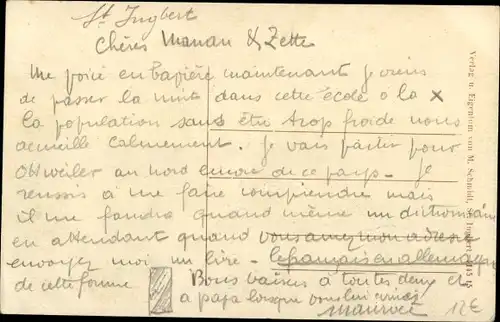 St Ingbert
Chères Maman & Zette
Me voici en bavière maintenant je viens
de passer la nuit dans cette école o la x
la population sans être trop froide nous
accueille calmement. Je vais partir pour
Ottweiler au nord encore de ce pays. Je
reussis à me faire comprendre mais
il me faudra quand même un dictionnaire
en attendant quand vous aurez mon adresse
envoyez moi un livre le français en allemagne
de cette forme Bons baisers à toutes deux et
a papa lorsque vous lui
Maurice
12€
Verlag u. Eigentum von M. Schmidt, St. Ingbert